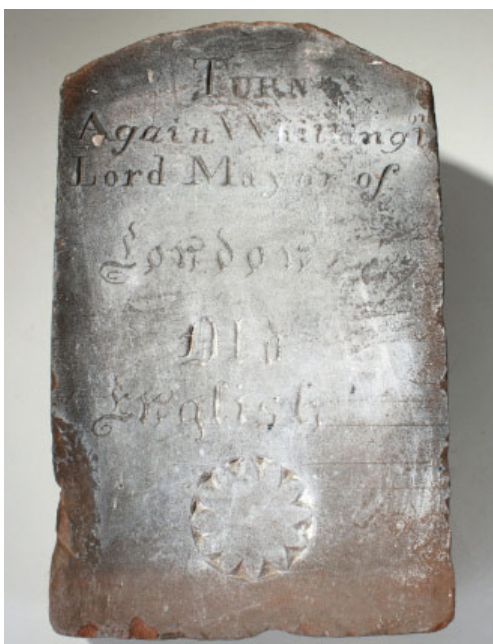 TURN
Again Whittingt
Lord Mayor of
London
Old
English